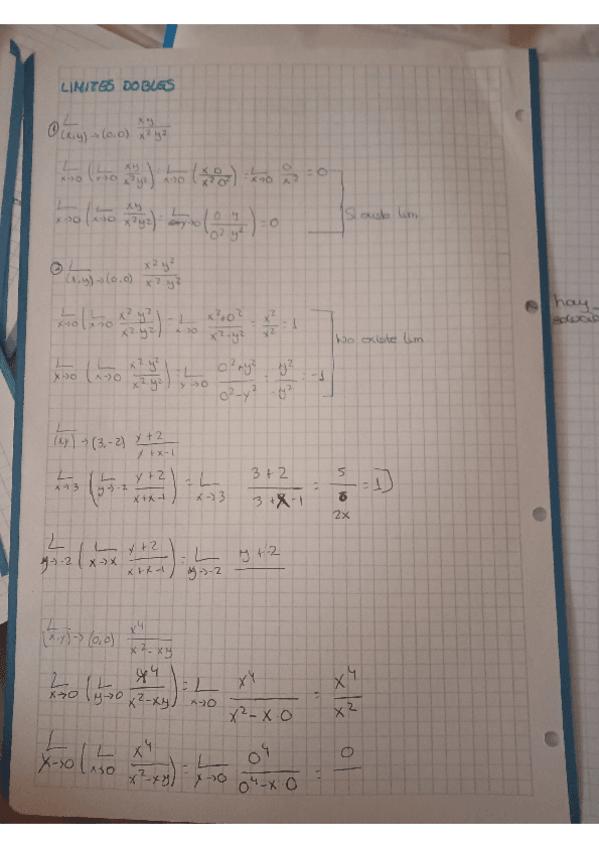 LIMITES DOBLES
① L (x,y)→(0,0) xy / x² y²
L x→0 ( L x→0 xy / x² y² ) = L x→0 ( x 0 / x² 0² ) = L x→0 0 / x² = 0
L x→0 ( L x→0 xy / x² y² ) = L y→0 ( 0 y / 0² y² ) = 0
Si existe lim
② L (x,y)→(0,0) x² y² / x² y²
L x→0 ( L x→0 x² y² / x² y² ) = L x→0 x²+0² / x²-y² = x² / x² = 1
L x→0 ( L x→0 x² y² / x² y² ) = L y→0 0²+y² / 0²-y² = y² / -y² = -1
No existe lim
hay
L (x,y)→(3,-2) y+2 / y+x-1
L x→3 ( L y→-2 y+2 / x+x-1 ) = L x→3 3+2 / 3+x-1 = 5 / 5 = 1
2x
L y→-2 ( L x→x y+2 / x+x-1 ) = L y→-2 y+-2
L (x,y)→(0,0) x⁴ / x²-xy
L x→0 ( L y→0 x⁴ / x²-xy ) = L x→0 x⁴ / x²-x·0 = x⁴ / x²
L x→0 ( L x→0 x⁴ / x²-xy ) = L x→0 0⁴ / 0⁴-x·0 = 0